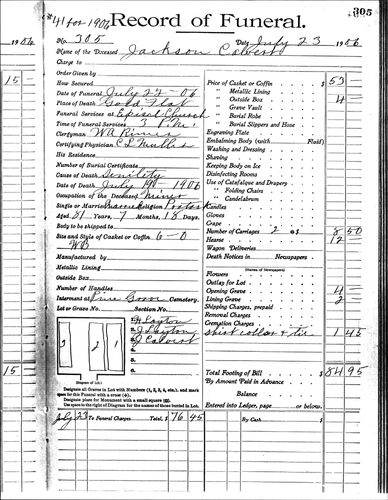 305
#41 for 1906
Record of Funeral.
1906
No. 305
Date July 23 1906
Name of the Deceased Jackson Calvert
Charge to
Order Given by
How Secured
Date of Funeral July 22-06
Place of Death Gold Flat
Funeral Services at Episcl Church
Time of Funeral Services 3 P.M.
Clergyman
Certifying Physician
His Residence
Number of Burial Certificate
Cause of Death Senility
Date of Death July 19 1906
Occupation of the Deceased Miner
Single or Married Religion
Aged 81 Years, 7 Months, 18 Days.
Body to be shipped to
Size and Style of Casket or Coffin 6-0
WB
Manufactured by
Metallic Lining
Outside Box
Number of Handles
Interment at Pine Grove Cemetery.
Lot or Grave No. Section No.
3 2 1
1. Layton
2. J Layton
3. J Calvert
4.
5.
6.
(Diagram of Lot.)
Designate all Graves in Lot with Numbers (1, 2, 3, 4, etc.), and mark
space for this Funeral with a cross (+).
Designate place for Monument with a small square (□).
Use space to the right of Diagram for the names of those buried in Lot.
23 To Funeral Charges Total, $ 76 45
15 -
15 -
Price of Casket or Coffin $ 53
" Metallic Lining
" Outside Box 4
" Grave Vault
" Burial Robe
" Burial Slippers and Hose
Engraving Plate
Embalming Body (with Fluid)
Washing and Dressing
Shaving
Keeping Body on Ice
Disinfecting Rooms
Use of Catafalque and Drapery
" Folding Chairs
" Candelabrum
Candles
Gloves
Crape
Number of Carriages 2 @ $ 8 50
Hearse 12
Wagon Deliveries
Death Notices in Newspapers
(Names of Newspapers)
Flowers
Outlay for Lot
Opening Grave 4
Lining Grave 2
Shipping Charges, prepaid
Removal Charges
Cremation Charges
shirt collar & tie 1 45
Total Footing of Bill $ 84 95
By Amount Paid in Advance
Balance
Entered into Ledger, page or below.
By Cash $